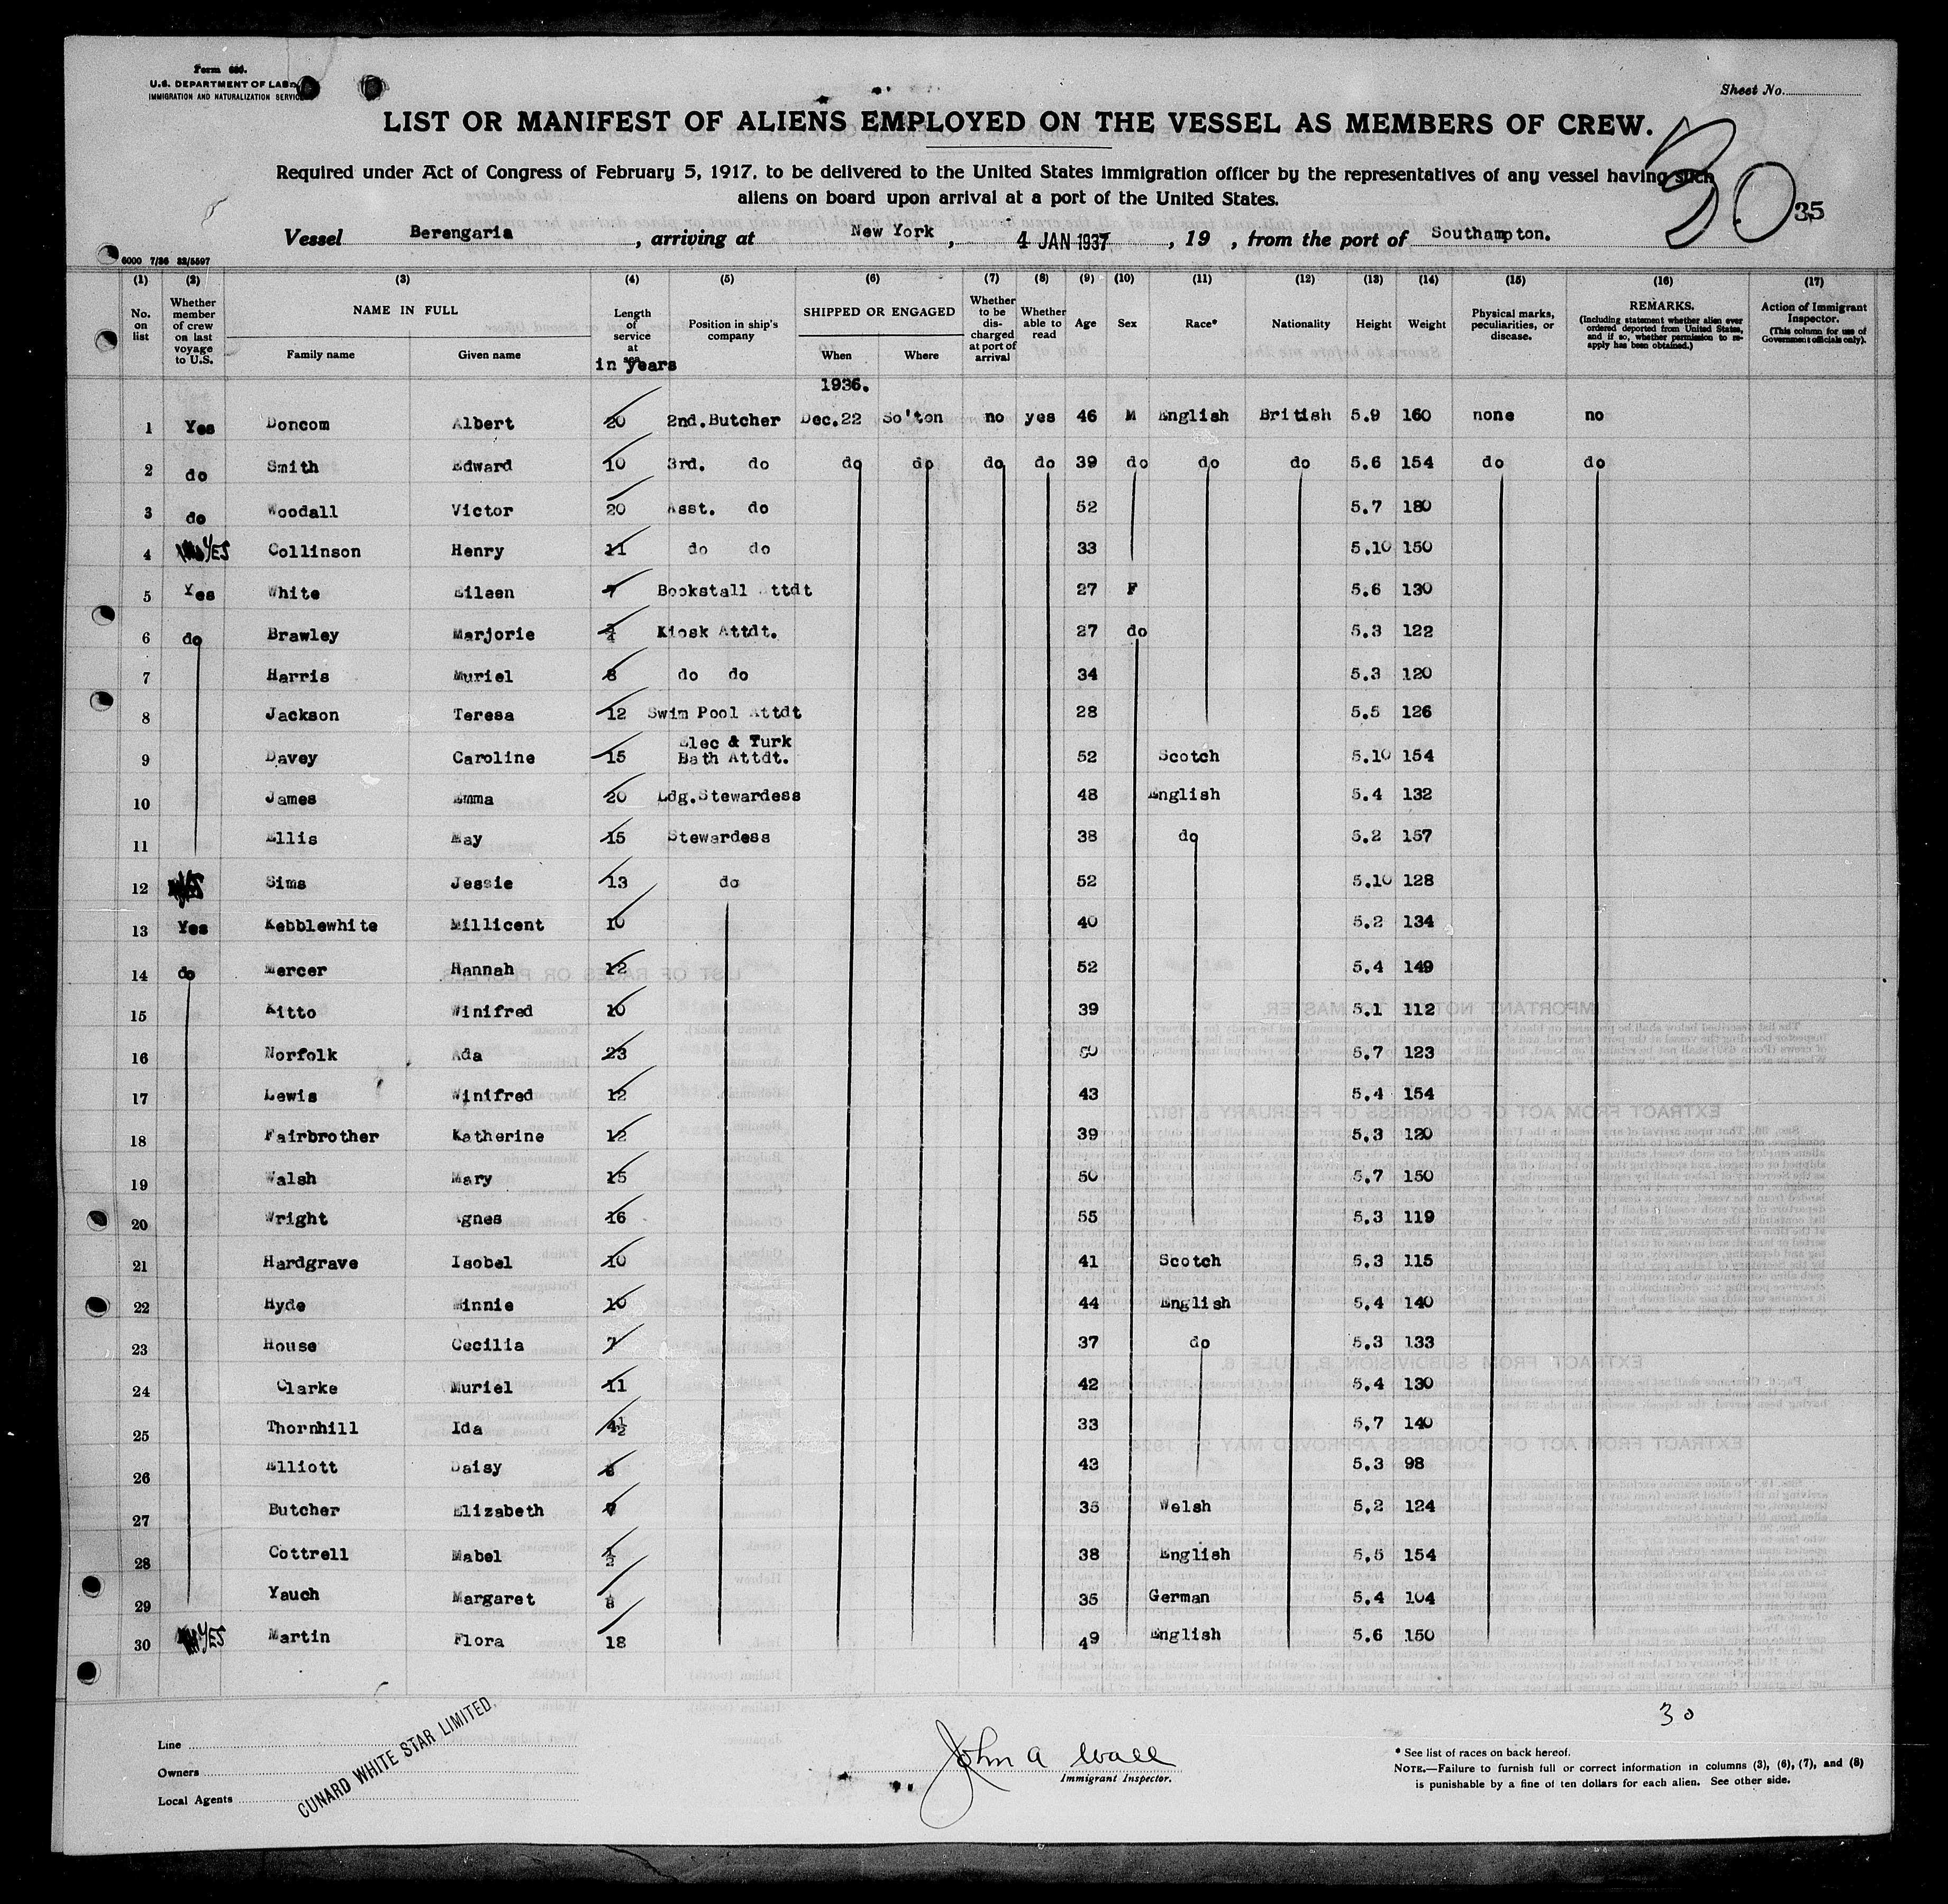 Form 680.
U.S. DEPARTMENT OF LABOR
IMMIGRATION AND NATURALIZATION SERVICE
Sheet No.
LIST OR MANIFEST OF ALIENS EMPLOYED ON THE VESSEL AS MEMBERS OF CREW.
Required under Act of Congress of February 5, 1917, to be delivered to the United States immigration officer by the representatives of any vessel having such
aliens on board upon arrival at a port of the United States.
30
35
Vessel Berengaria, arriving at New York, 4 JAN 1937, 19 , from the port of Southampton.
6000 7/36 32/5597
(1) (2) (3) (4) (5) (6) (7) (8) (9) (10) (11) (12) (13) (14) (15) (16) (17)
No. on list
Whether member of crew on last voyage to U.S.
NAME IN FULL
Family name Given name
Length of service at sea
in years
Position in ship's company
SHIPPED OR ENGAGED
When Where
Whether to be discharged at port of arrival
Whether able to read
Age Sex Race* Nationality Height Weight
Physical marks, peculiarities, or disease.
REMARKS.
(Including statement whether alien ever ordered deported from United States, and if so, whether permission to reapply has been obtained.)
Action of Immigrant Inspector.
(This column for use of Government officials only).
1936.
1 Yes Doncom Albert 20 2nd.Butcher Dec.22 So'ton no yes 46 M English British 5.9 160 none no
2 do Smith Edward 10 3rd. do do do do do 39 do do do 5.6 154 do do
3 do Woodall Victor 20 Asst. do 52 5.7 180
4 YES Collinson Henry 11 do do 33 5.10 150
5 Yes White Eileen 7 Bookstall Attdt 27 F 5.6 130
6 do Brawley Marjorie 3/4 Kiosk Attdt. 27 do 5.3 122
7 Harris Muriel 8 do do 34 5.3 120
8 Jackson Teresa 12 Swim Pool Attdt 28 5.5 126
9 Davey Caroline 15 Elec & Turk Bath Attdt. 52 Scotch 5.10 154
10 James Emma 20 Ldg.Stewardess 48 English 5.4 132
11 Ellis May 15 Stewardess 38 do 5.2 157
12 YES Sims Jessie 13 do 52 5.10 128
13 Yes Kebblewhite Millicent 10 40 5.2 134
14 do Mercer Hannah 12 52 5.4 149
15 Kitto Winifred 10 39 5.1 112
16 Norfolk Ada 23 5.7 123
17 Lewis Winifred 12 43 5.4 154
18 Fairbrother Katherine 12 39 5.3 120
19 Walsh Mary 15 50 5.7 150
20 Wright Agnes 16 55 5.3 119
21 Hardgrave Isobel 10 41 Scotch 5.3 115
22 Hyde Minnie 10 44 English 5.4 140
23 House Cecilia 7 37 do 5.3 133
24 Clarke Muriel 11 42 5.4 130
25 Thornhill Ida 4½ 33 5.7 140
26 Elliott Daisy 43 5.3 98
27 Butcher Elizabeth 35 Welsh 5.2 124
28 Cottrell Mabel ½ 38 English 5.5 154
29 Yauch Margaret 35 German 5.4 104
30 YES Martin Flora 18 49 English 5.6 150
30
Line
Owners
Local Agents
CUNARD WHITE STAR LIMITED.
John A Wall
Immigrant Inspector.
* See list of races on back hereof.
NOTE.—Failure to furnish full or correct information in columns (3), (6), (7), and (8)
is punishable by a fine of ten dollars for each alien. See other side.